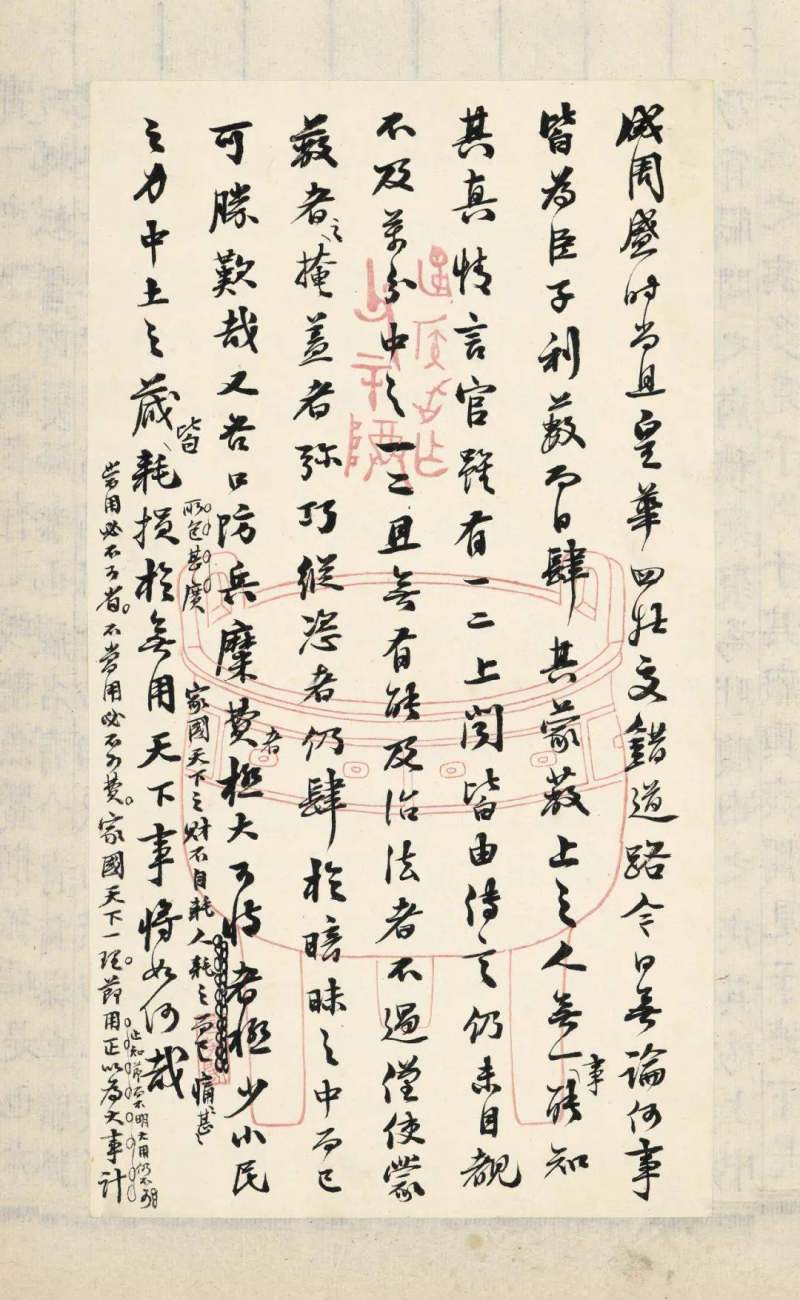 成周盛时尚且皇華四牡交錯道路今日無論何事
皆為臣子利薮而日肆其蒙蔽上之人無一事能知
其真情言官雖有一二上聞皆由傳言仍未目覩
不及萬分中之一二且無有能及治法者不過僅使蒙
蔽者之掩蓋者弥巧縱恣者仍肆於暗昧之中而已
可勝歎哉又各口防兵糜費者極大可恃者極少小民
之力中土之藏皆耗損於無用天下事將如何哉
所包甚廣
家國天下之財不自耗人耗之而已痛甚
當用必不可省不當用必不可費家國天下一理節用正以為大事計